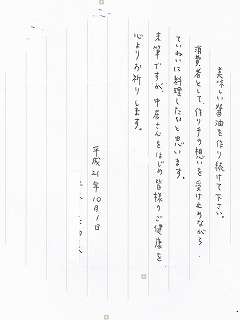 美味しい醤油を作り続けて下さい。
消費者として、作り手の想いを受け止めながら、
ていねいに料理したいと思います。
末筆ですが、中居さんをはじめ皆様のご健康を
心よりお祈りします。
平成21年10月1日